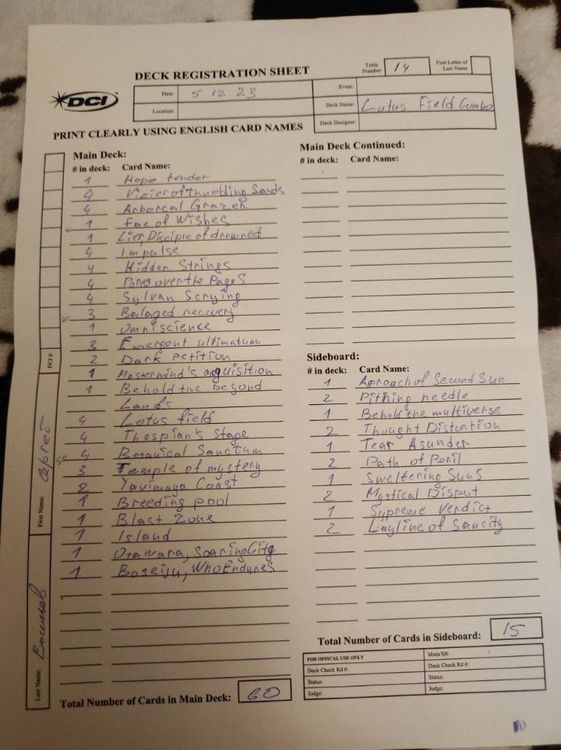 DECK REGISTRATION SHEET
Table Number 14
First Letter of Last Name
DCI
Date: 5.12.23
Event:
Location:
Deck Name: Lotus Field Combo
Deck Designer:
PRINT CLEARLY USING ENGLISH CARD NAMES
Main Deck:
# in deck: Card Name:
1 Hope tender
4 Vizier of thumbling Sands
4 Arboreal Grazer
1 Fae of Wishes
1 Lier, Disciple of drowned
4 Impulse
4 Hidden Strings
4 Pore over the Pages
4 Sylvan Scrying
3 Bailaged recovery
1 Omniscience
3 Emergent ultimatum
2 Dark petition
1 Maskermind's aquisition
1 Behold the beyond
Lands
4 Lotus field
4 Thespian's Stage
4 Botanical Sanctum
3 Temple of mystery
2 Yavimaya Coast
1 Breeding pool
1 Blast Zone
1 Island
1 Otawara, Soaring City
1 Boseiju, Who Endures
Total Number of Cards in Main Deck: 60
Main Deck Continued:
# in deck: Card Name:
Sideboard:
# in deck: Card Name:
1 Aproach of Second Sun
2 Pithing needle
1 Behold the multiverse
2 Thought Distortion
1 Tear Asunder
2 Path of Peril
1 Sweltering Suns
2 Mystical Disput
1 Supreme Verdict
2 Layline of Sancity
Total Number of Cards in Sideboard: 15
FOR OFFICIAL USE ONLY
Main/SB:
Deck Check Rd #:
Deck Check Rd #:
Status:
Status:
Judge:
Judge:
DCI #:
First Name: Сергей
Last Name: